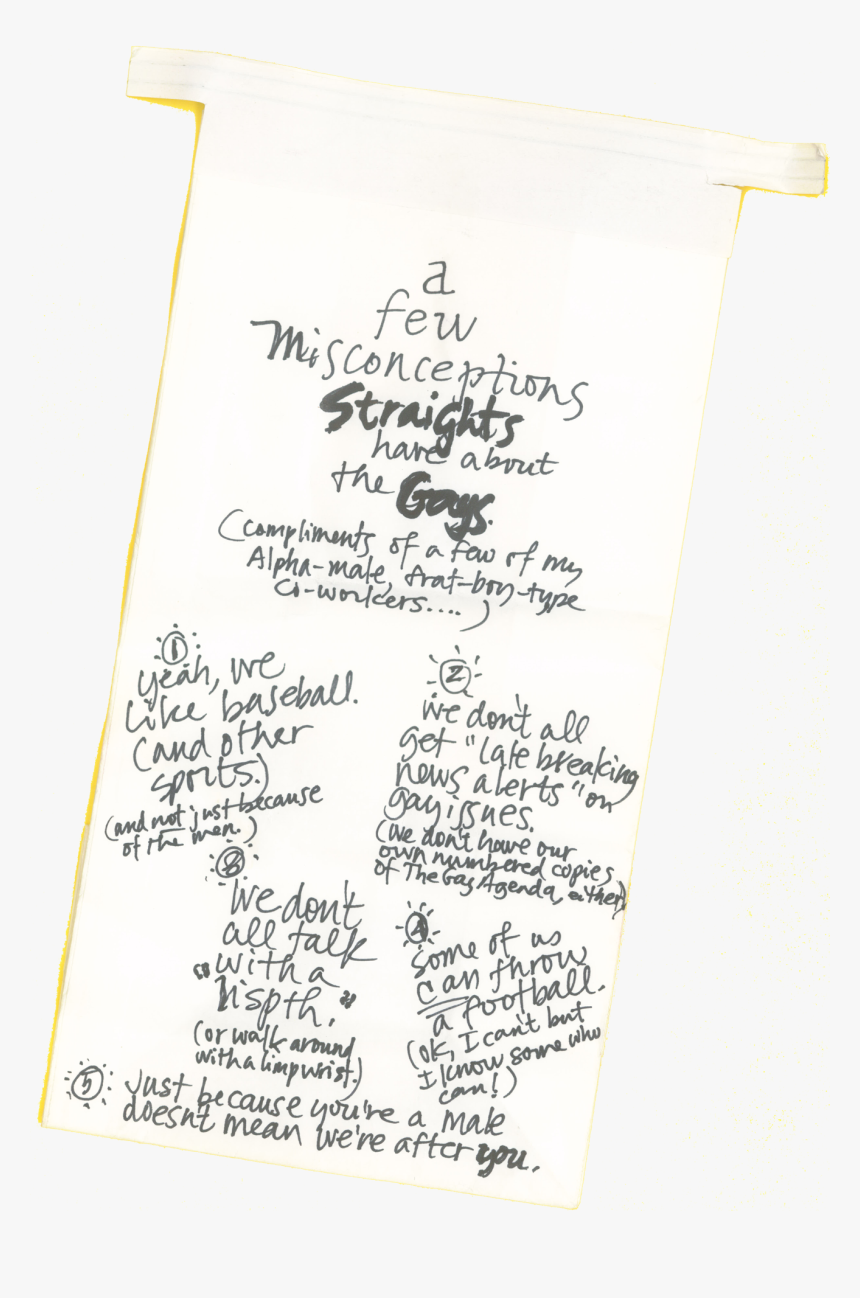 a
few
Misconceptions
Straights
have about
the Gays.
(compliments of a few of my
Alpha-male, frat-boy-type
co-workers....)
1
yeah, we
like baseball.
(and other
sports.)
(and not just because
of the men.)
2
we don't all
get "late breaking
news alerts" on
gay issues.
(we don't have our
own numbered copies
of The Gay Agenda, either)
3
We don't
all talk
with a
"lispth."
(or walk around
with a limp wrist.)
4
Some of us
can throw
a football.
(ok, I can't but
I know some who
can!)
5
Just because you're a male
doesn't mean we're after you.